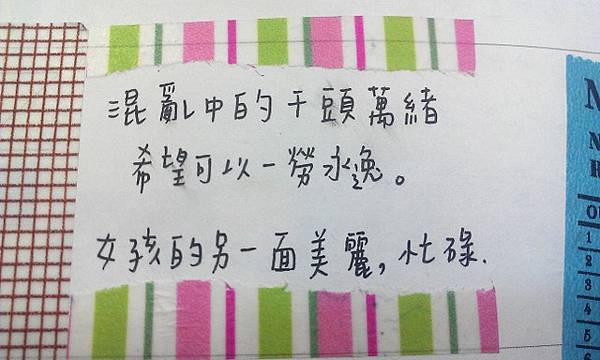 混亂中的千頭萬緒
希望可以一勞永逸。
女孩的另一面美麗,忙碌.
M
N
R
1
2
3
4
5